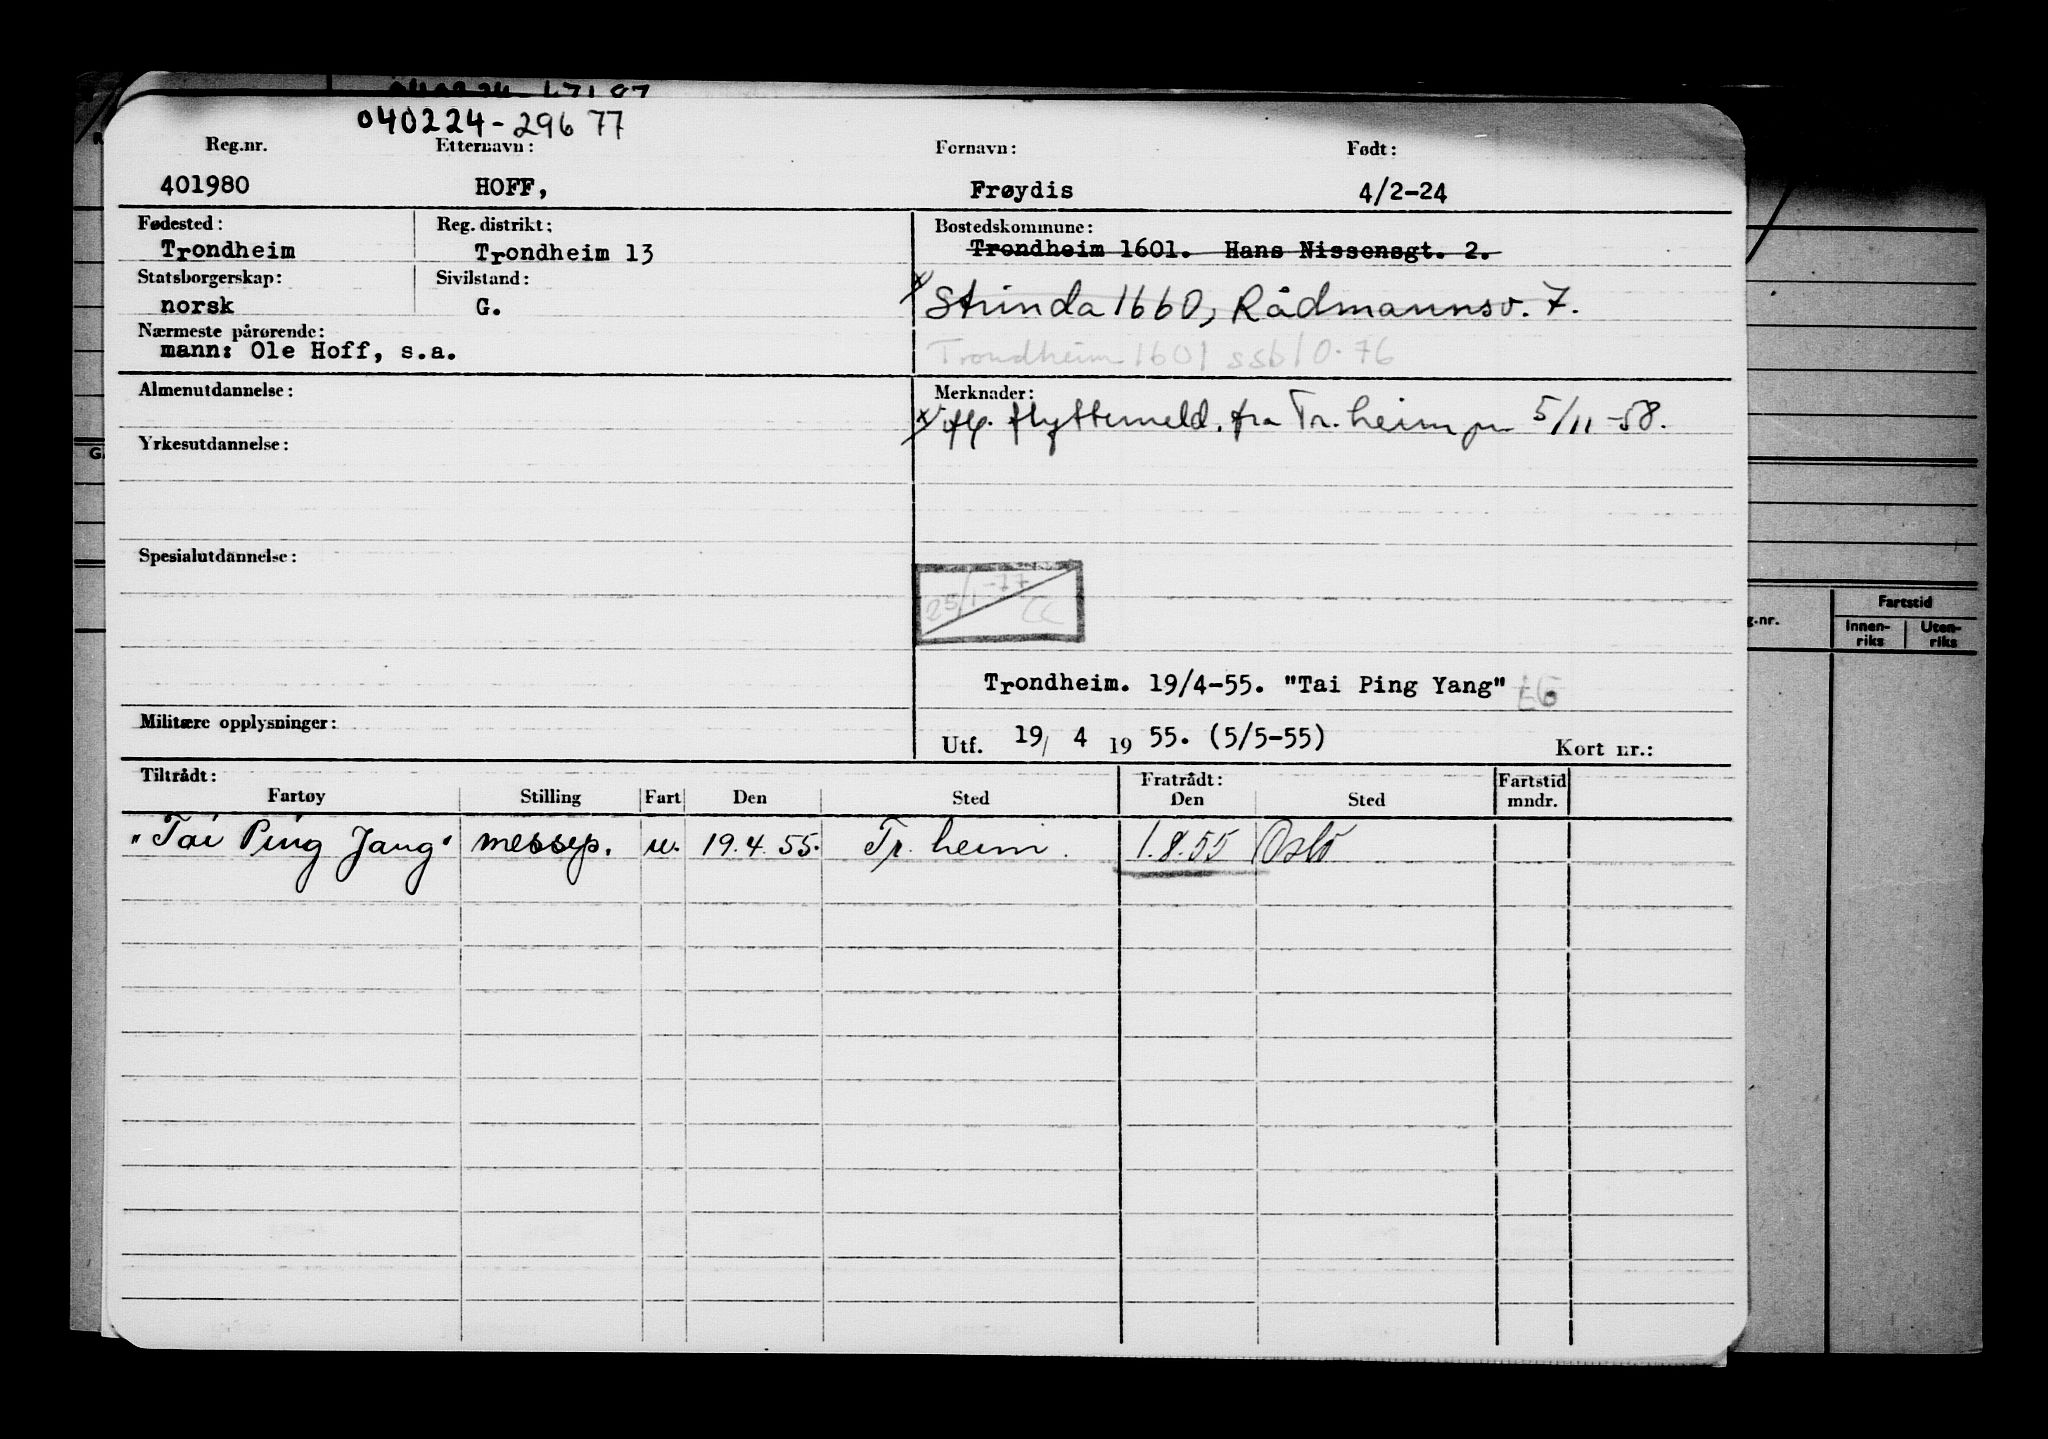 040224-29677
Reg.nr. Etternavn: Fornavn: Født:
401980 HOFF, Frøydis 4/2-24
Fødested: Reg. distrikt: Bostedskommune:
Trondheim Trondheim 13 Trondheim 1601. Hans Nissensgt. 2.
Statsborgerskap: Sivilstand:
norsk G. x Strinda 1660, Rådmannsv. 7.
Nærmeste pårørende:
mann: Ole Hoff, s.a. Trondheim 1601 ssb 10.76
Almenutdannelse: Merknader:
x iflg. flyttemeld. fra Tr.heim pr 5/11-58.
Yrkesutdannelse:
Spesialutdannelse:
25/1-77
CC
Trondheim. 19/4-55. "Tai Ping Yang"
Militære opplysninger: Utf. 19/ 4 19 55. (5/5-55) Kort nr.:
Tiltrådt: Fratrådt: Fartstid
Fartøy Stilling Fart Den Sted Den Sted mndr.
"Tai Ping Jang" messep. u. 19.4.55. Tr.heim. 1.8.55 Oslo
g.nr. Fartstid
Innen-riks Uten-riks